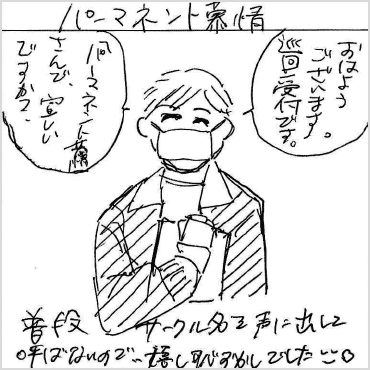 パーマネント慕情
おはよう
ございます。
巡回受付です。
パーマネント慕情
さんで、宜しい
ですか?
普段 サークル名を声に出して
呼ばないので、嬉し恥ずかしでした